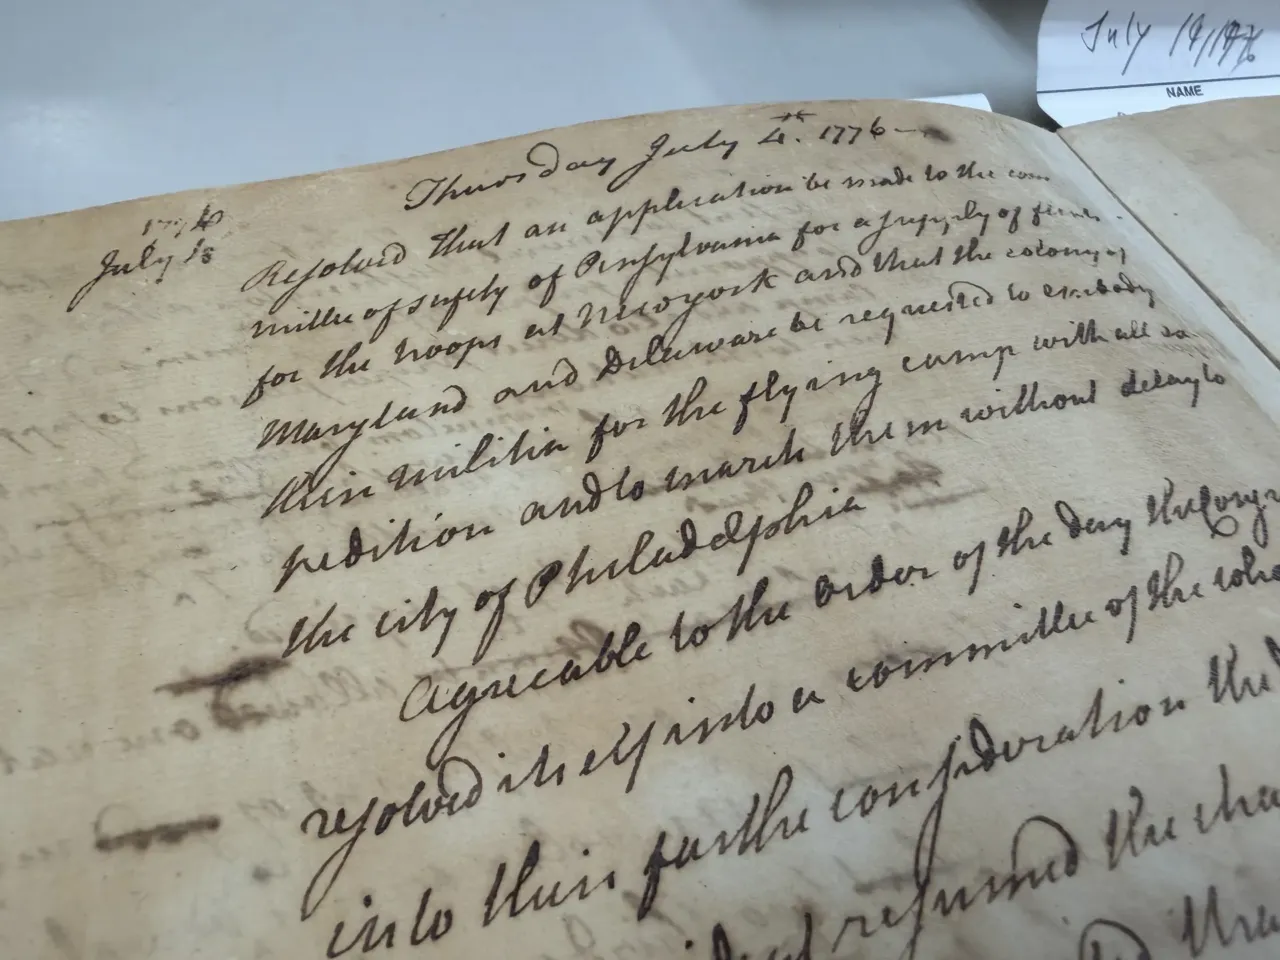 July 19, 1776
NAME
Thursday July 4th. 1776
1776
July 18
Resolved that an application be made to the com
mittee of safety of Pensylvania for a supply of flints
for the troops at New york and that the colony of
Maryland and Delaware be requested to embody
their militia for the flying camp with all ex
pedition and to march them without delay to
the city of Philadelphia
Agreeable to the order of the day the Congr
resolved itself into a committee of the whole
into their farther consideration the
resumed the chai